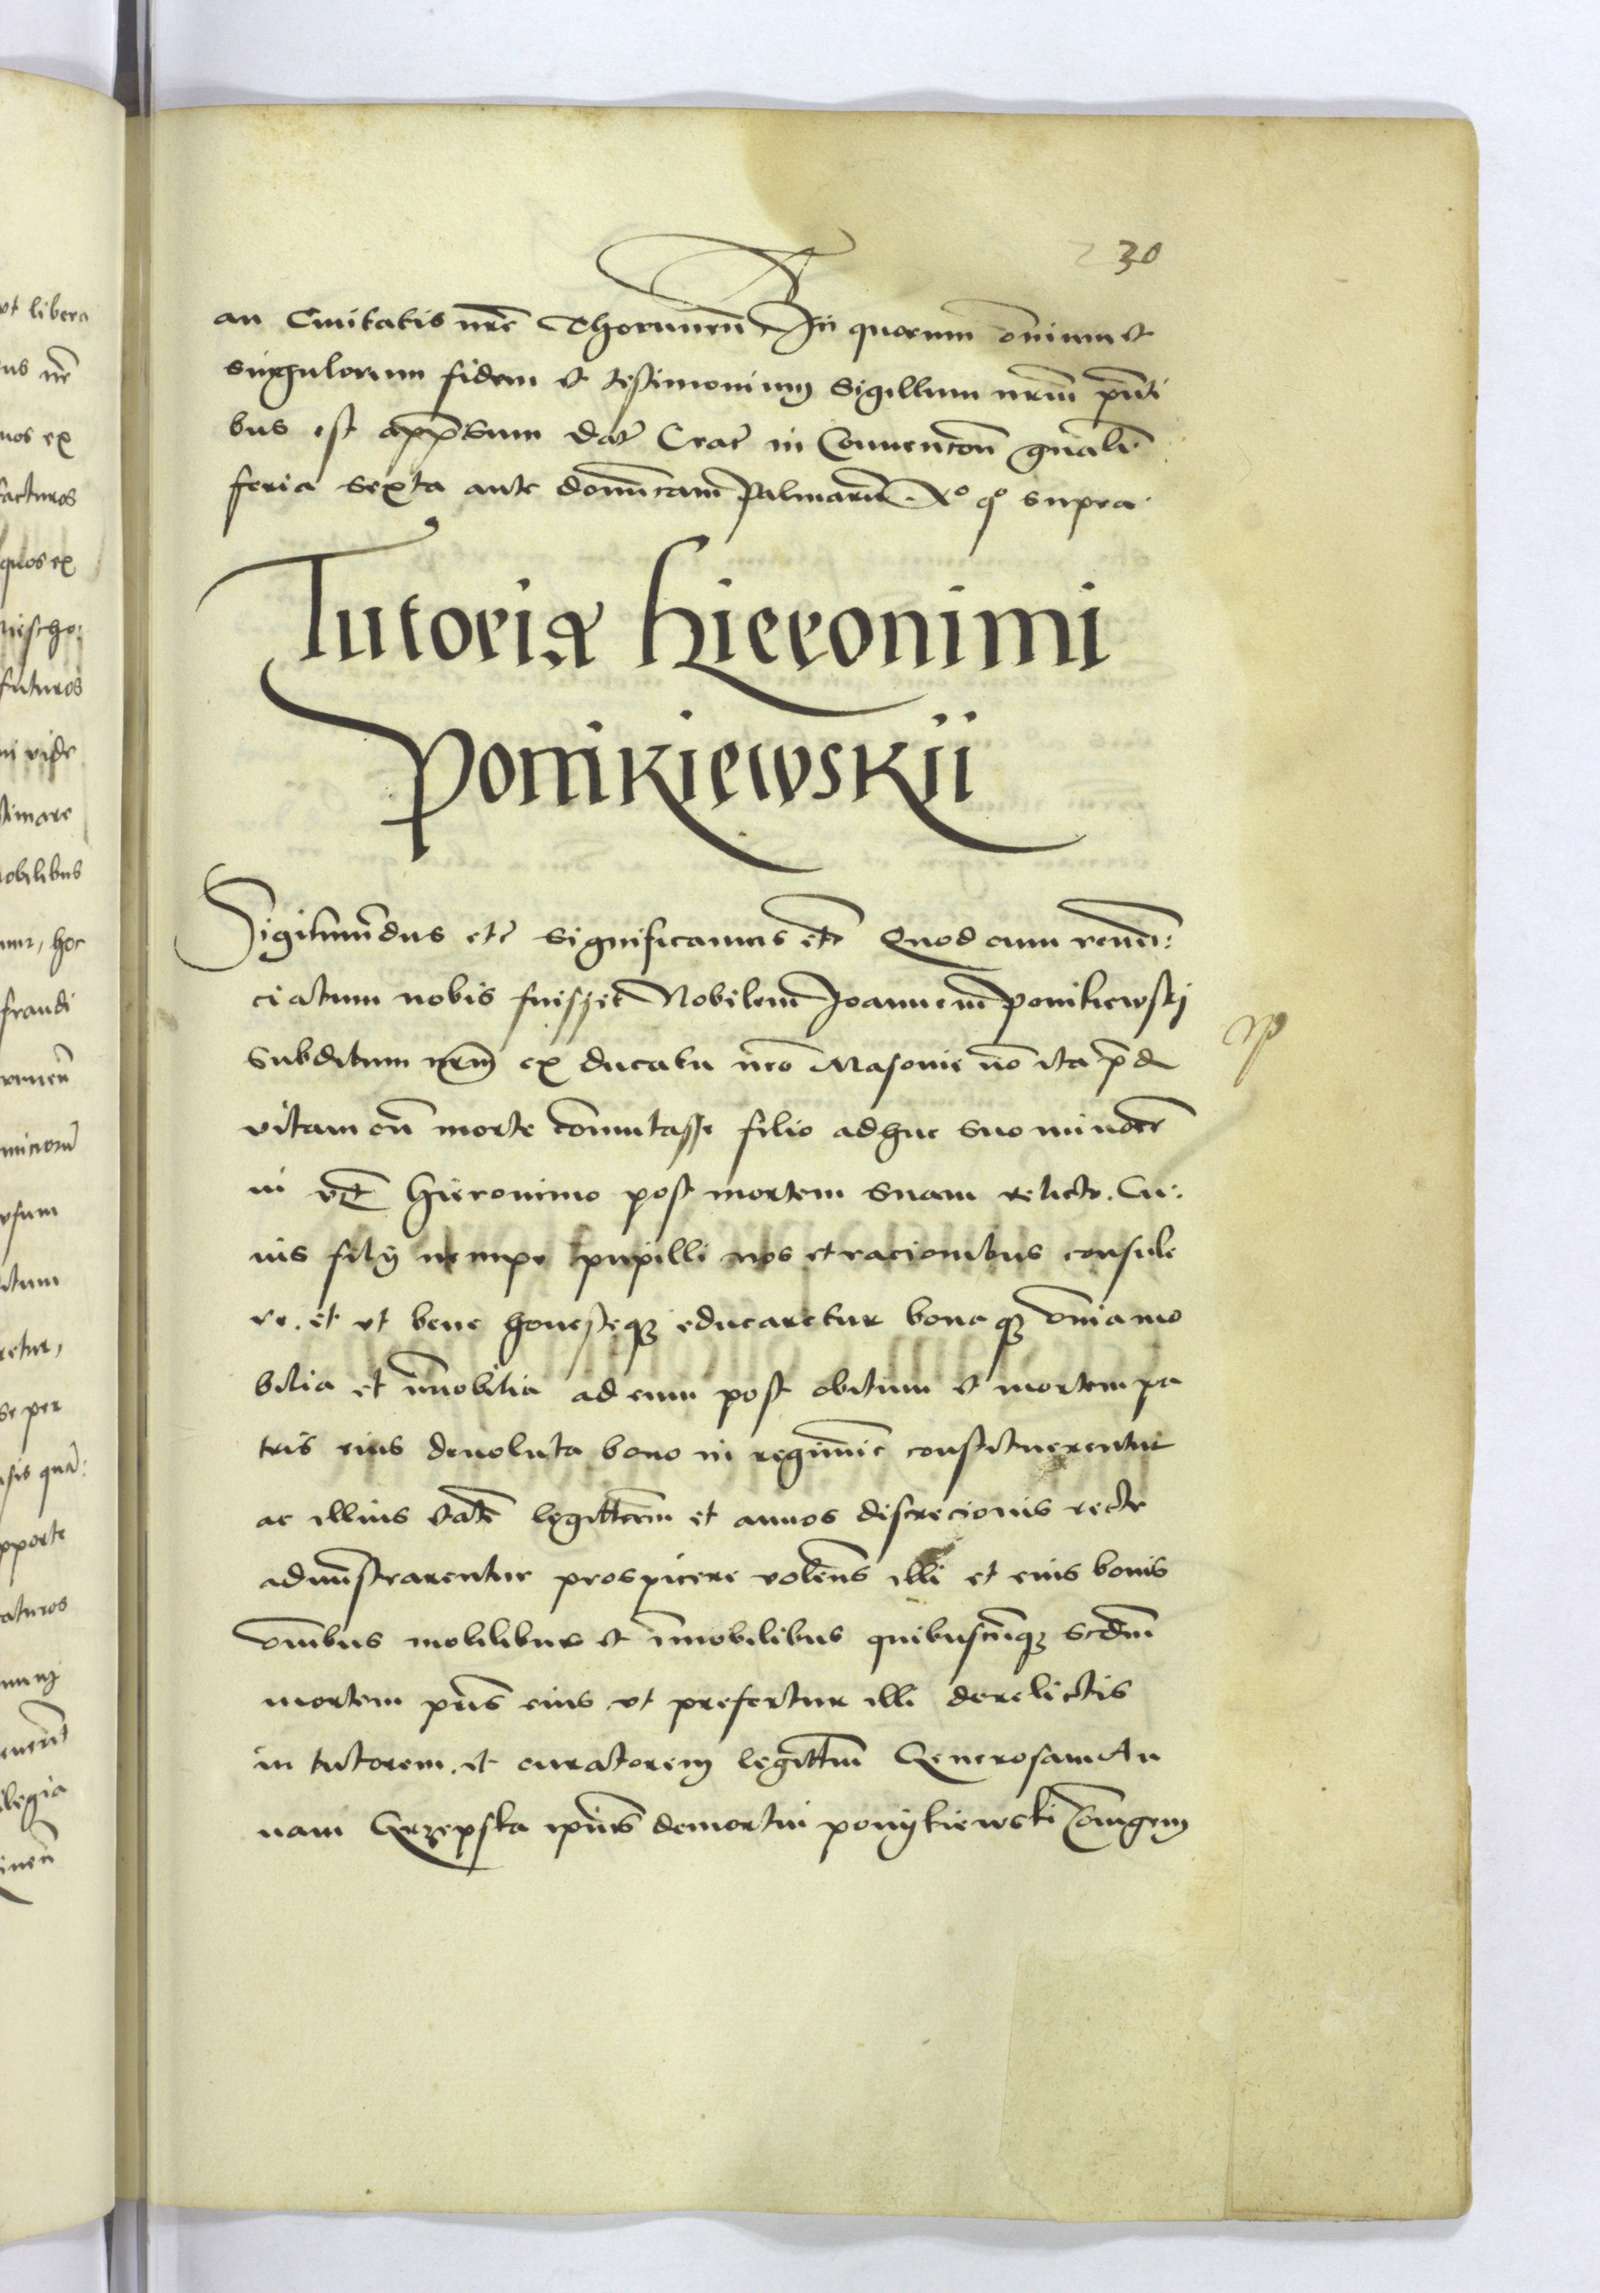 30
an Ciuitatis nrē Thorunen̄ In quorum om̄nium et
singulorum fidem et testimonium Sigillum nrūm pn̄ti
bus est app̄ensum dat̄ Crac̄ in Conuencōn gn̄ali
feria sexta ante domīnicam Palmarū Aº qº supra
Tutoria Hieronimi
Ponikiewskii
Sigismūndus etc̄ significamus etc̄ Quod cum renun̄:
ciatum nobis fuisset Nobilem Joannem Ponikiewskj
subditum nrm̄ ex ducatu nr̄o Masouie nō ita prd̄
vitam cū morte com̄mutasse filio adhuc suo minorē
in Hieronimo post mortem suam relicto. Cu:
ius filij nempe pupilli nos et racionibus consule
re. et vt bene honesteqȝ educaretur bonaqȝ om̄nia mo
bilia et im̄mobilia ad eum post obitum et mortem pa
tris eius deuoluta bono in regimine constituerentur
ac illius etatē legittimam et annos discrecionis recte
admīstrarentur prospicere volen̄s illi et eius bonis
om̄nibus mobilibus et im̄mobilibus quibuscumqȝ scdm̄
mortem pr̄is eius vt prefertur illi derelictis
in tutorem et curatorem legittm̄ Generosam An
nam Grzepska ipsius demortui ponijkiewski Coniugem